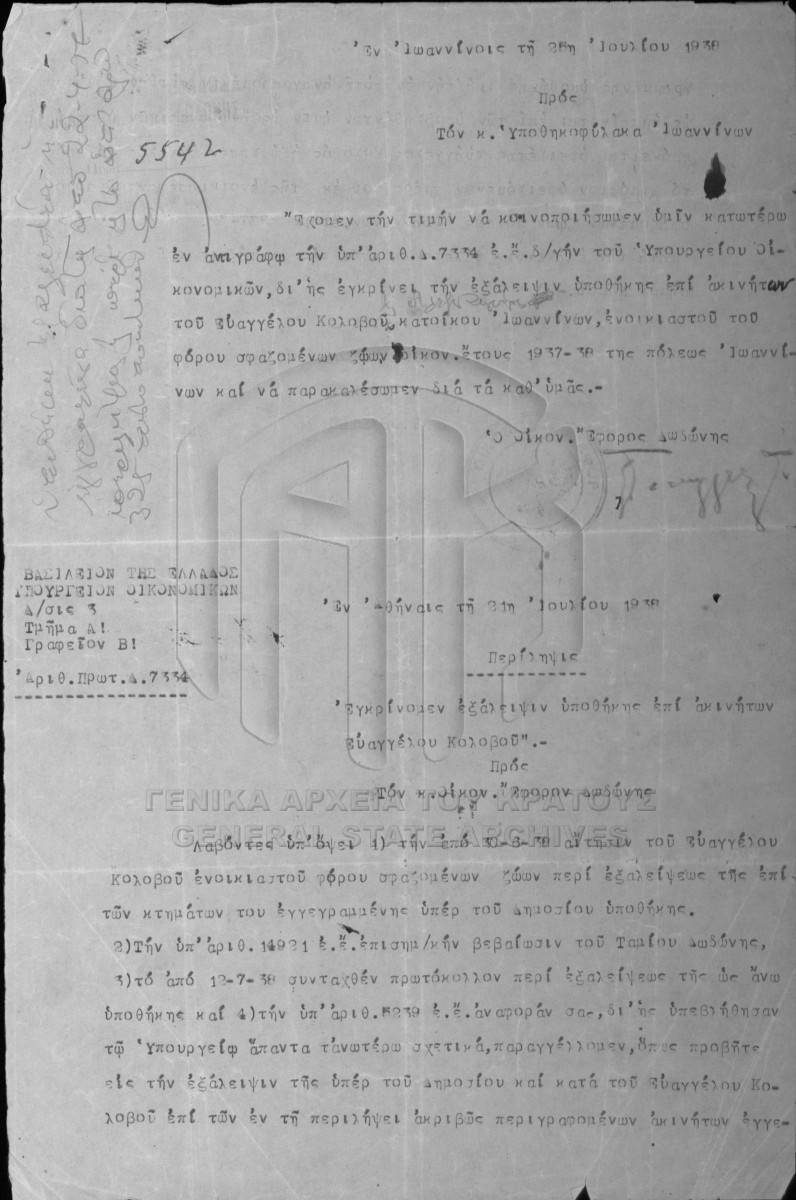 Ἐν Ἰωαννίνοις τῇ 25η Ἰουλίου 1938
Πρός
Τόν κ. Ὑποθηκοφύλακα Ἰωαννίνων
5542
Ἔχομεν τήν τιμήν νά κοινοποιήσωμεν ὑμῖν κατωτέρω
ἐν ἀντιγράφῳ τήν ὑπ' ἀριθ.Δ.7334 ἐ.ἔ.δ/γήν τοῦ Ὑπουργείου Οἰ-
κονομικῶν, δι' ἧς ἐγκρίνει τήν ἐξάλειψιν ὑποθήκης ἐπί ἀκινήτων
τοῦ Εὐαγγέλου Κολοβοῦ, κατοίκου Ἰωαννίνων, ἐνοικιαστοῦ τοῦ
φόρου σφαζομένων ζώων οἰκον. ἔτους 1937-38 της πόλεως Ἰωαννί-
νων καί νά παρακαλέσωμεν διά τά καθ' ὑμᾶς.-
Ὁ Οἰκον. Ἔφορος Δωδώνης
ΒΑΣΙΛΕΙΟΝ ΤΗΣ ΕΛΛΑΔΟΣ
ΥΠΟΥΡΓΕΙΟΝ ΟΙΚΟΝΟΜΙΚΩΝ
Δ/σις 3
Τμῆμα Α!
Γραφεῖον Β!
Ἀριθ. Πρωτ. Δ.7334
Ἐν Ἀθήναις τῇ 21η Ἰουλίου 1938
Περίληψις
Ἐγκρίνομεν ἐξάλειψιν ὑποθήκης ἐπί ἀκινήτων
Εὐαγγέλου Κολοβοῦ".-
Πρός
Τόν κ. Οἰκον. Ἔφορον Δωδώνης
ΓΕΝΙΚΑ ΑΡΧΕΙΑ ΤΟΥ ΚΡΑΤΟΥΣ
GENERAL STATE ARCHIVES
Λαβόντες ὑπ' ὄψει 1) τήν ἀπό 30-6-38 αἴτησιν τοῦ Εὐαγγέλου
Κολοβοῦ ἐνοικιαστοῦ φόρου σφαζομένων ζώων περί ἐξαλείψεως τῆς ἐπί
τῶν κτημάτων του ἐγγεγραμμένης ὑπέρ τοῦ Δημοσίου ὑποθήκης.
2) Τήν ὑπ' ἀριθ. 14921 ἐ.ἔ. ἐπισημ/κήν βεβαίωσιν τοῦ Ταμίου Δωδώνης,
3) τό ἀπό 12-7-38 συνταχθέν πρωτόκολλον περί ἐξαλείψεως τῆς ὡς ἄνω
ὑποθήκης καί 4) τήν ὑπ' ἀριθ. 5239 ἐ.ἔ. ἀναφοράν σας, δι' ἧς ὑπεβλήθησαν
τῷ Ὑπουργείῳ ἅπαντα τἀνωτέρω σχετικά, παραγγέλλομεν, ὅπως προβῆτε
εἰς τήν ἐξάλειψιν τῆς ὑπέρ τοῦ Δημοσίου καί κατά τοῦ Εὐαγγέλου Κο-
λοβοῦ ἐπί τῶν ἐν τῇ περιλήψει ἀκριβῶς περιγραφομένων ἀκινήτων ἐγγε-